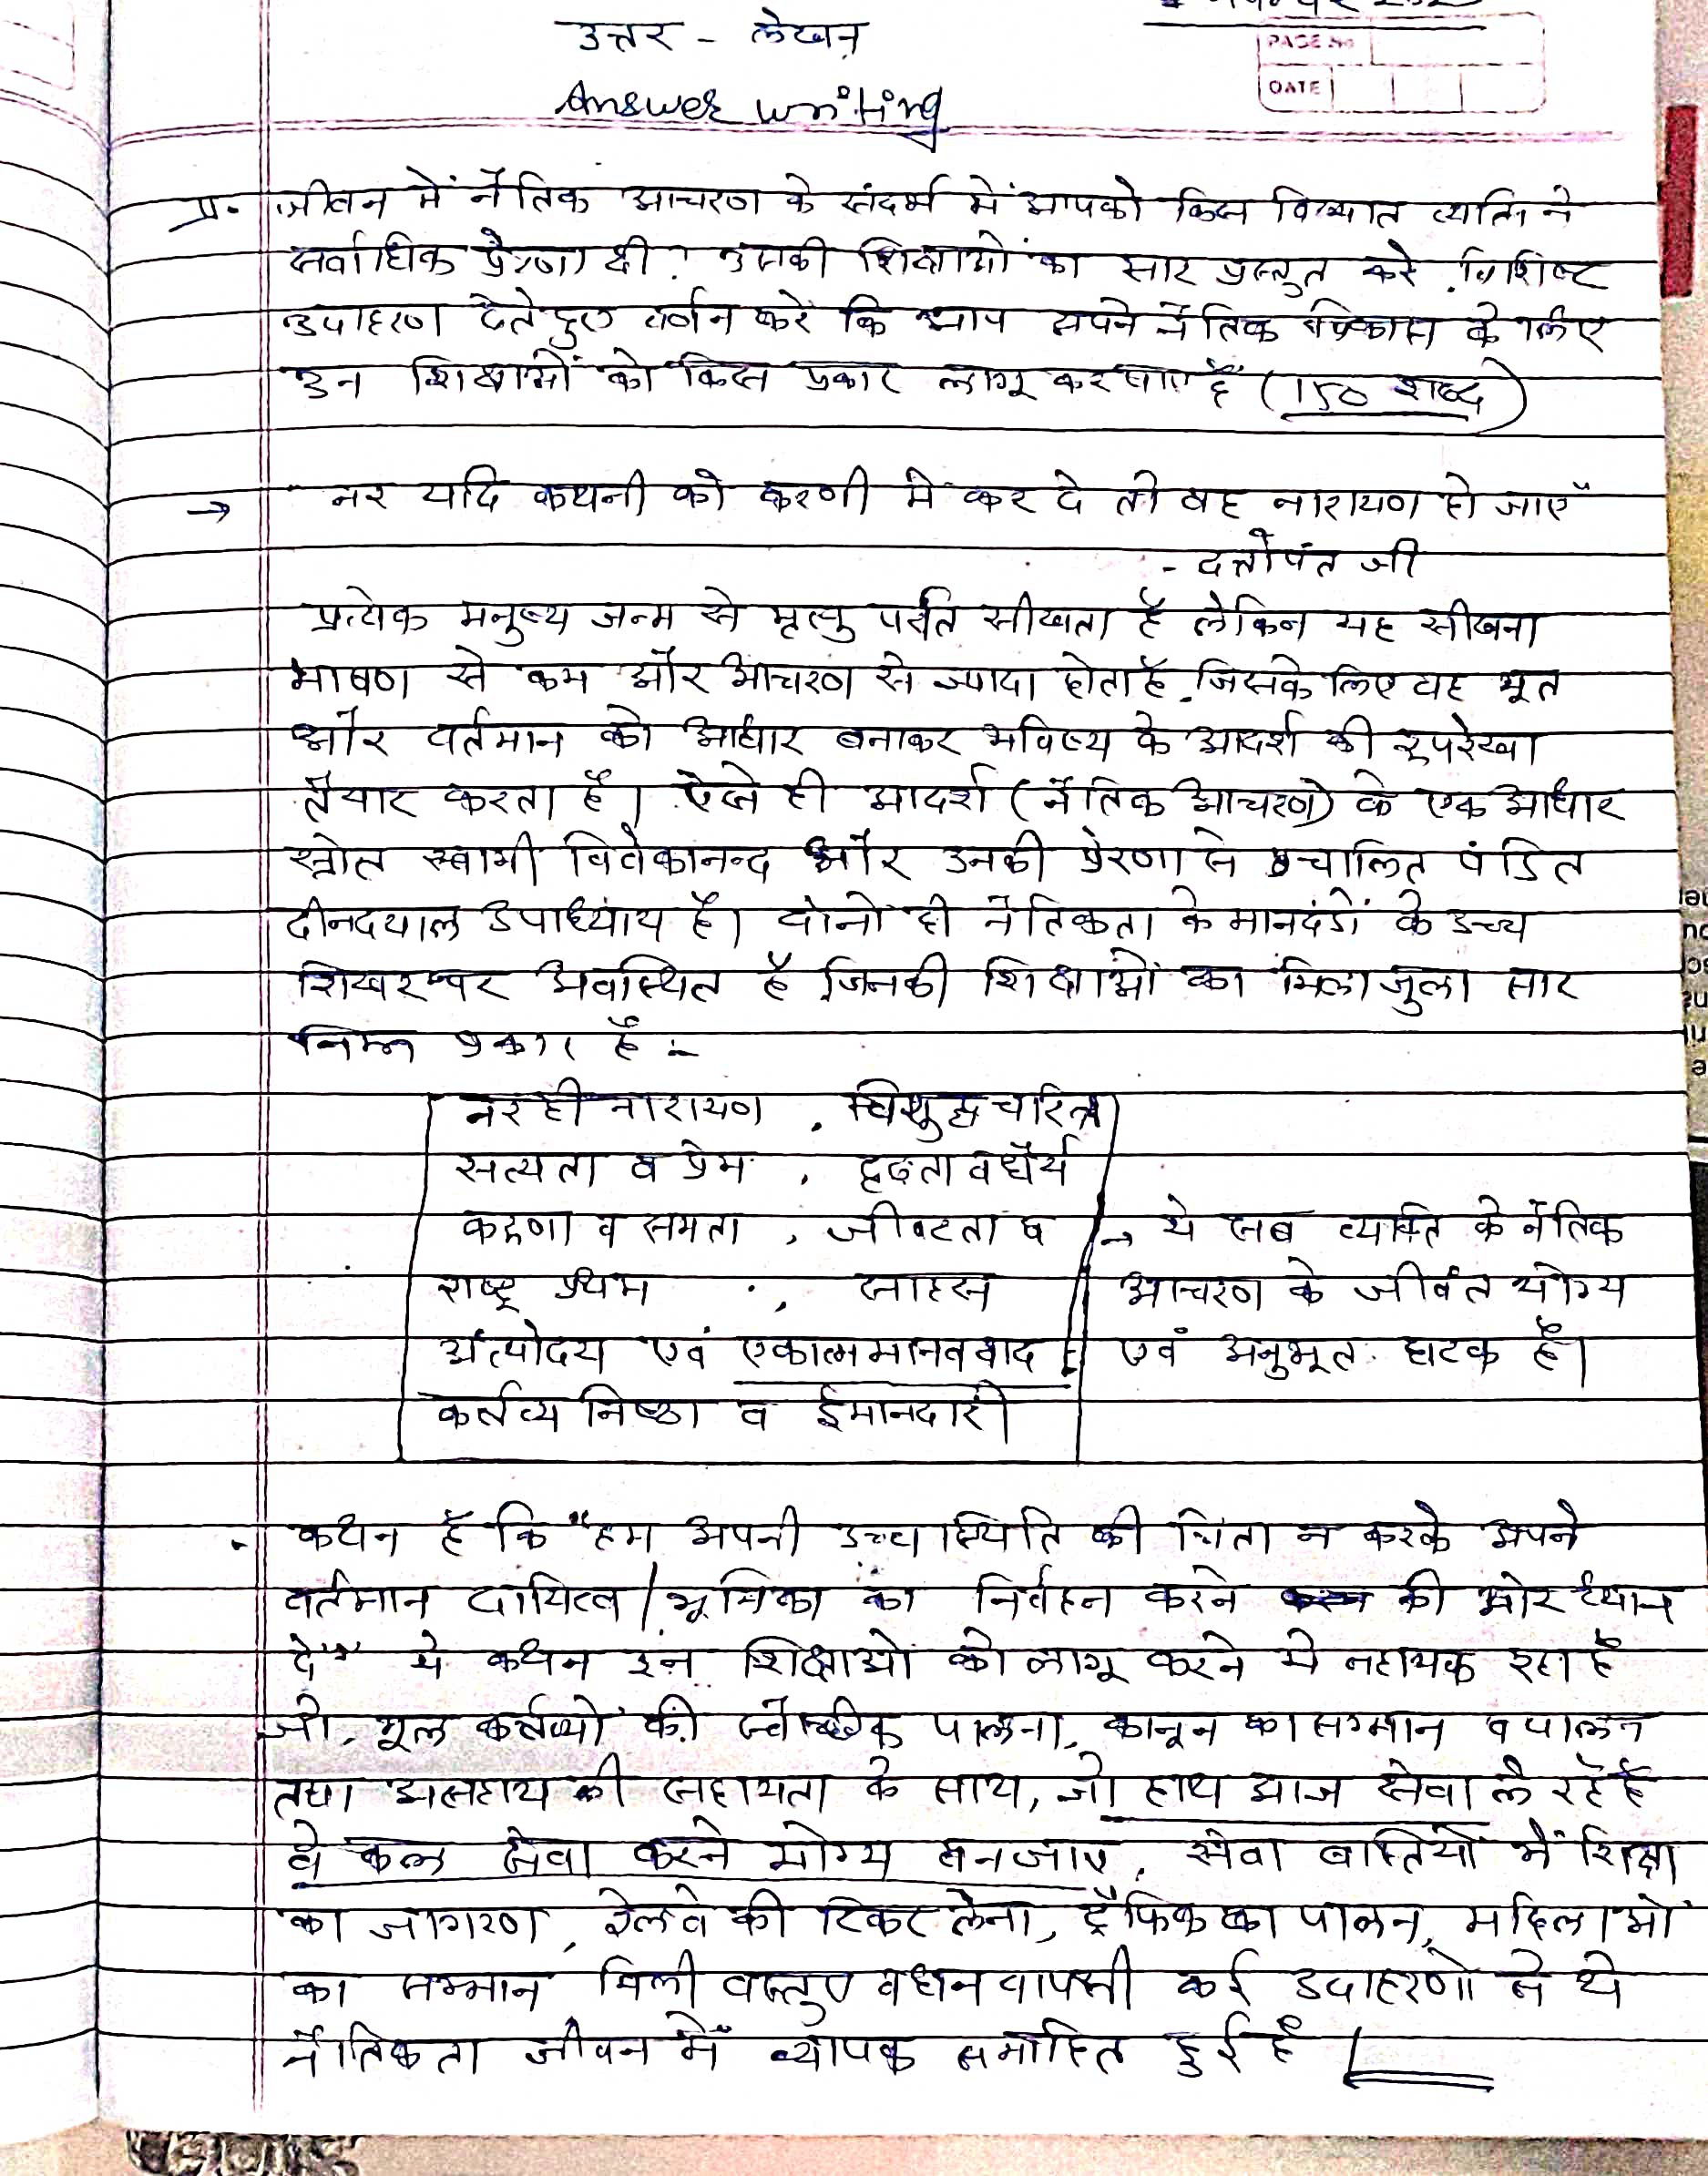 उत्तर - लेखन
Answer writing
PAGE No
DATE
प्र. जीवन में नैतिक आचरण के संदर्भ में आपको किस विख्यात व्यक्ति ने
सर्वाधिक प्रेरणा दी? उसकी शिक्षाओं का सार प्रस्तुत करे. विशिष्ट
उदाहरण देते हुए वर्णन करें कि आप अपने नैतिक विकास के लिए
उन शिक्षाओं को किस प्रकार लागू कर पाए हैं (150 शब्द)
→ नर यदि कथनी को करणी में कर दे तो वह नारायण हो जाएँ
- दत्तोपंत जी
प्रत्येक मनुष्य जन्म से मृत्यु पर्यंत सीखता है लेकिन यह सीखना
भाषण से कम और आचरण से ज्यादा होता है. जिसके लिए वह भूत
और वर्तमान को आधार बनाकर भविष्य के आदर्श की रूपरेखा
तैयार करता है। ऐसे ही आदर्श (नैतिक आचरण) के एक आधार
स्त्रोत स्वामी विवेकानन्द और उनकी प्रेरणा से चालित पंडित
दीनदयाल उपाध्याय है। दोनो ही नैतिकता के मानदंडों के उच्च
शिखर पर अवस्थित है जिनकी शिक्षाओं का मिला जुला सार
निम्न प्रकार है :-
नर ही नारायण , विशुद्ध चरित्र
सत्यता व प्रेम , दृढता व धैर्य
करुणा व समता , जीवटता व → ये सब व्यक्ति के नैतिक
राष्ट्र प्रथम , साहस आचरण के जीवंत योग्य
अंत्योदय एवं एकात्म मानववाद एवं अनुभूत घटक है।
कर्तव्य निष्ठा व ईमानदारी
. कथन है कि "हम अपनी उच्च स्थिति की चिंता न करके अपने
वर्तमान दायित्व / भूमिका का निर्वहन करने की ओर ध्यान
दे" ये कथन इन शिक्षाओ को लागू करने मे सहायक रहा है
जो, मूल कर्तव्यों की स्वैच्छिक पालना, कानून का सम्मान व पालन
तथा असहाय की सहायता के साथ, जो हाथ आज सेवा ले रहे है
वे कल सेवा करने योग्य बन जाए, सेवा बस्तियों में शिक्षा
का जागरण, रेलवे की टिकट लेना, ट्रैफिक का पालन, महिलाओ
का सम्मान मिली वस्तुए व धन वापसी कई उदाहरणो से ये
नैतिकता जीवन में व्यापक समाहित हुई है